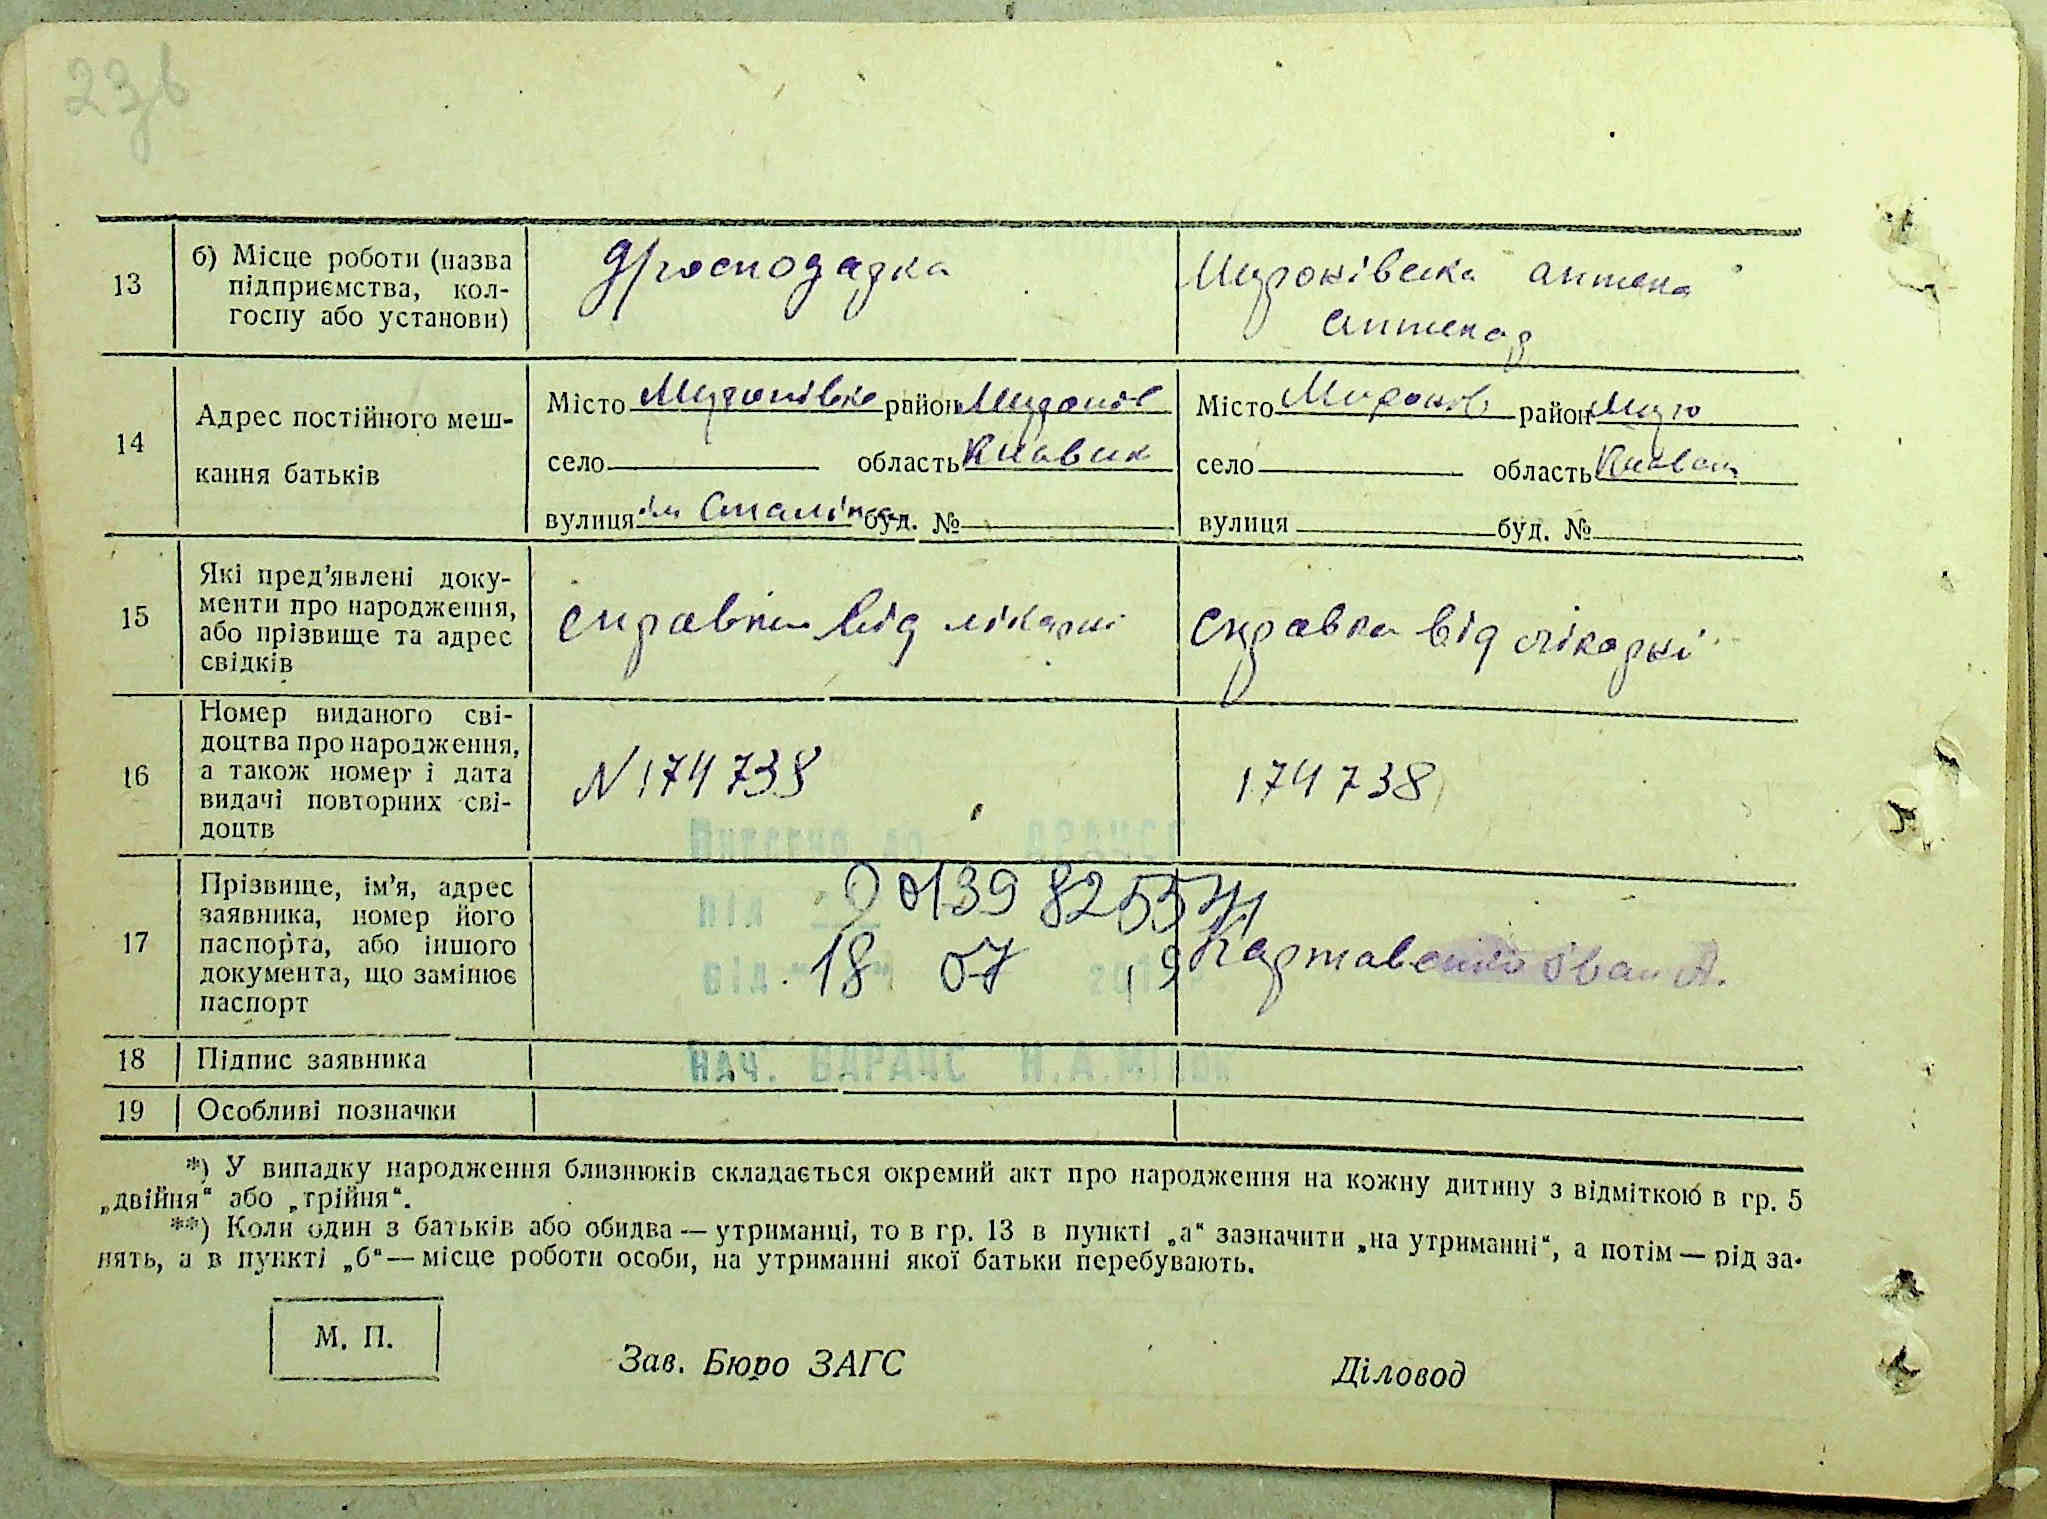 23зв
13
б) Місце роботи (назва
підприємства, кол-
госпу або установи)
д/господарка
Миронівська аптека
аптекар
14
Адрес постійного меш-
кання батьків
Місто Миронівка район Миронів
село область Київськ
вулиця ім Сталіна буд. №
Місто Миронів район Миро
село область Київськ
вулиця буд. №
15
Які пред’явлені доку-
менти про народження,
або прізвище та адрес
свідків
справка від лікарні
справка від лікарні
16
Номер виданого сві-
доцтва про народження,
а також номер і дата
видачі повторних сві-
доцтв
N 174738
174738
17
Прізвище, ім’я, адрес
заявника, номер його
паспорта, або іншого
документа, що замінює
паспорт
Внесено до ДРАЦСГ
від 00139825541
від "18" 07
Картавенко Іван А.
Нач. ВДРАЦС Н.А.
18
Підпис заявника
19
Особливі позначки
*) У випадку народження близнюків складається окремий акт про народження на кожну дитину з відміткою в гр. 5
„двійня“ або „трійня“.
**) Коли один з батьків або обидва — утриманці, то в гр. 13 в пункті „а“ зазначити „на утриманні“, а потім — рід за-
нять, а в пункті „б“ — місце роботи особи, на утриманні якої батьки перебувають.
М. П.
Зав. Бюро ЗАГС
Діловод